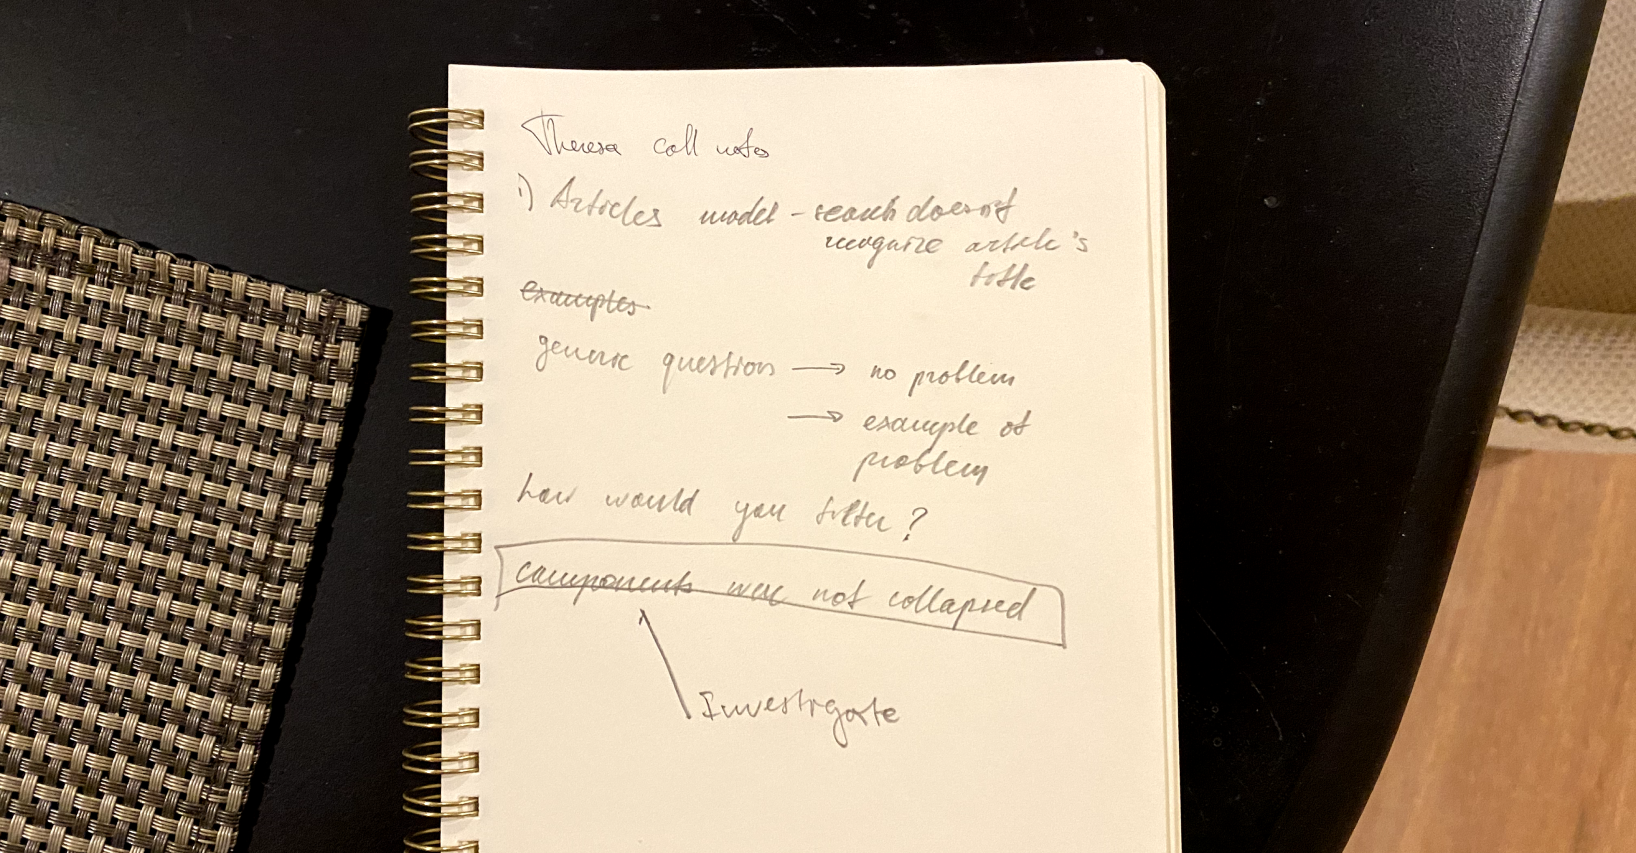 Theresa call notes
1) Articles model - search doesn't
recognize article's
title
examples
generic question → no problem
→ example of
problem
how would you filter?
components were not collapsed
Investigate